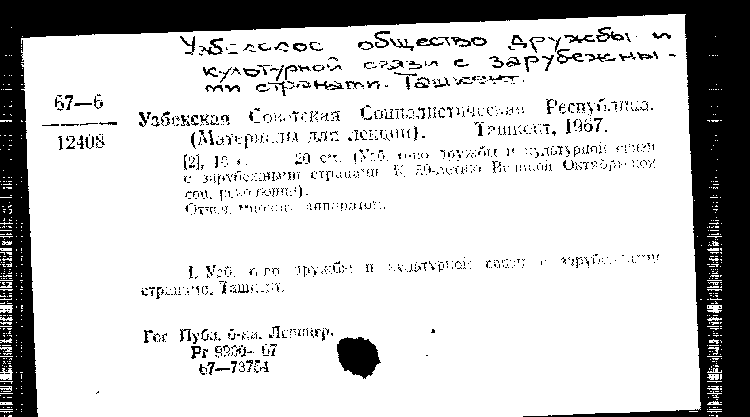 Узбекское общество дружбы и
культурной связи с зарубежны-
ми странами. Ташкент.
67—6
12408
Узбекская Советская Социалистическая Республика.
(Материалы для лекции). Ташкент, 1967.
[2], 18 с. 20 см. (Узб. о-во дружбы и культурной связи
с зарубежными странами. К 50-летию Великой Октябрьской
соц. революции).
Отпеч. множит. аппаратом.
I. Узб. о-во дружбы и культурной связи с зарубежными
странами. Ташкент.
Гос. Публ. б-ка. Ленингр.
Рг 9200—67
67—73754